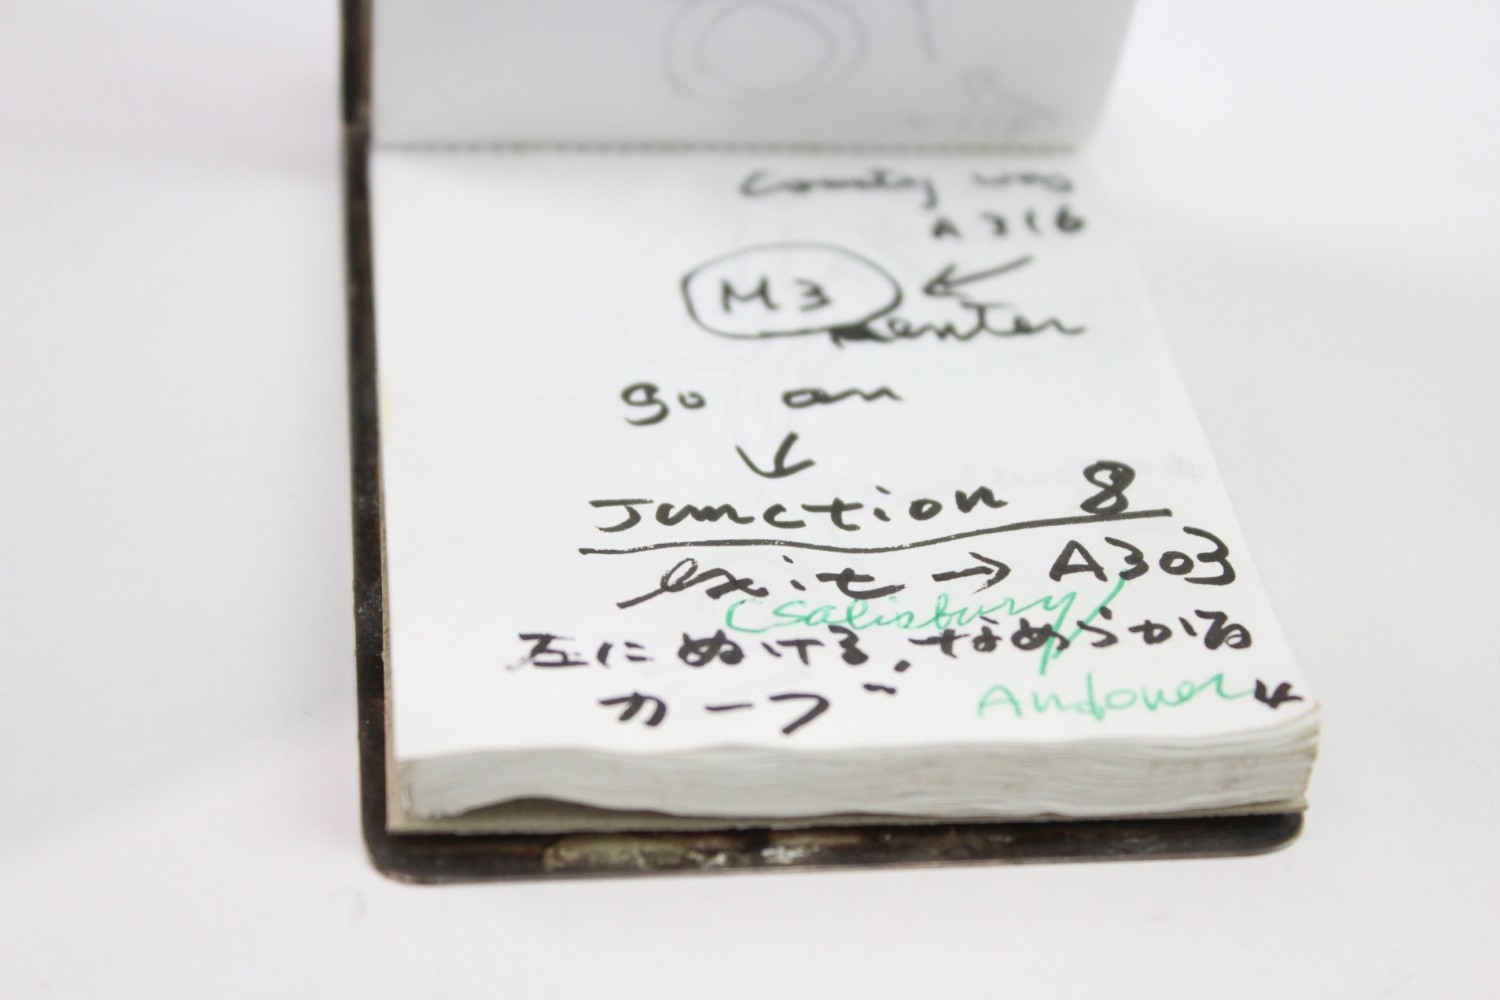 County way
A316
M3 ←
enter
go on
↓
Junction 8
exit → A303
(Salisbury/
左にぬける,なめらかな
カーブ
Andover